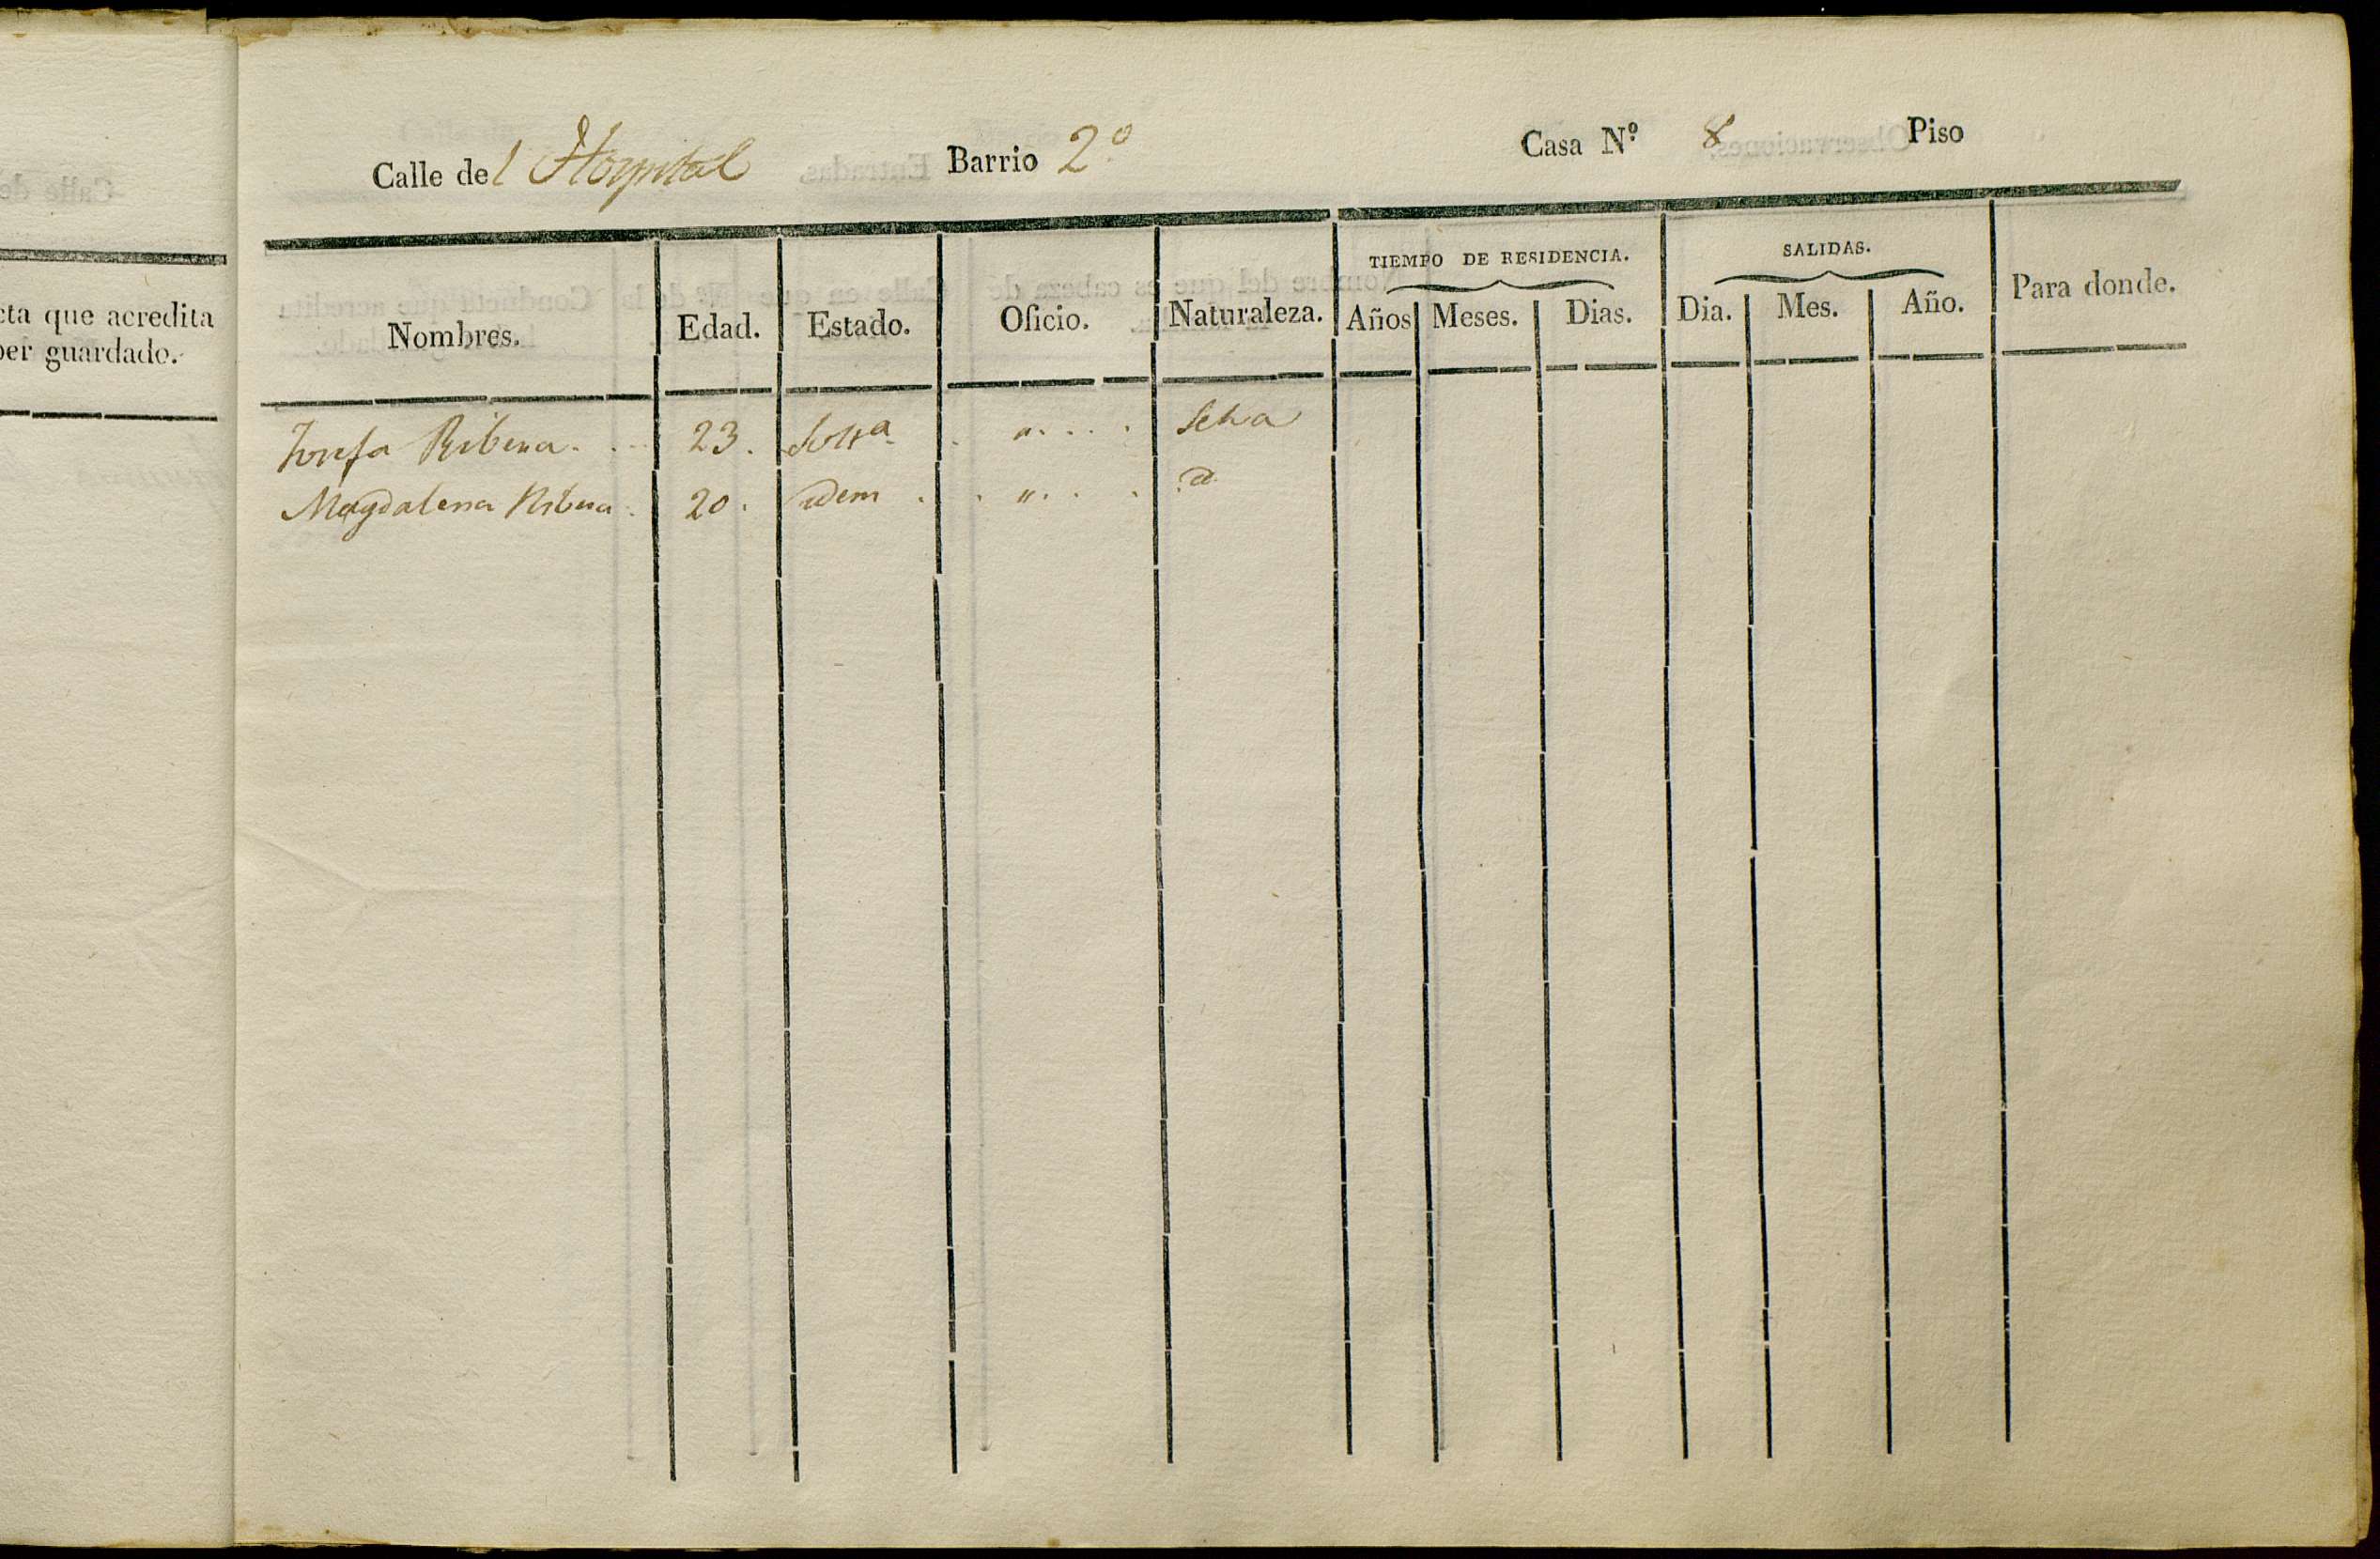 cta que acredita
ber guardado.
Calle del Hospital Barrio 2º Casa Nº 8 Piso
TIEMPO DE RESIDENCIA. SALIDAS.
Nombres. Edad. Estado. Oficio. Naturaleza. Años Meses. Dias. Dia. Mes. Año. Para donde.
Josefa Ribera . . . 23 . Soltª . " . . . Selva
Magdalena Ribera . 20 . idem . . " . . . id